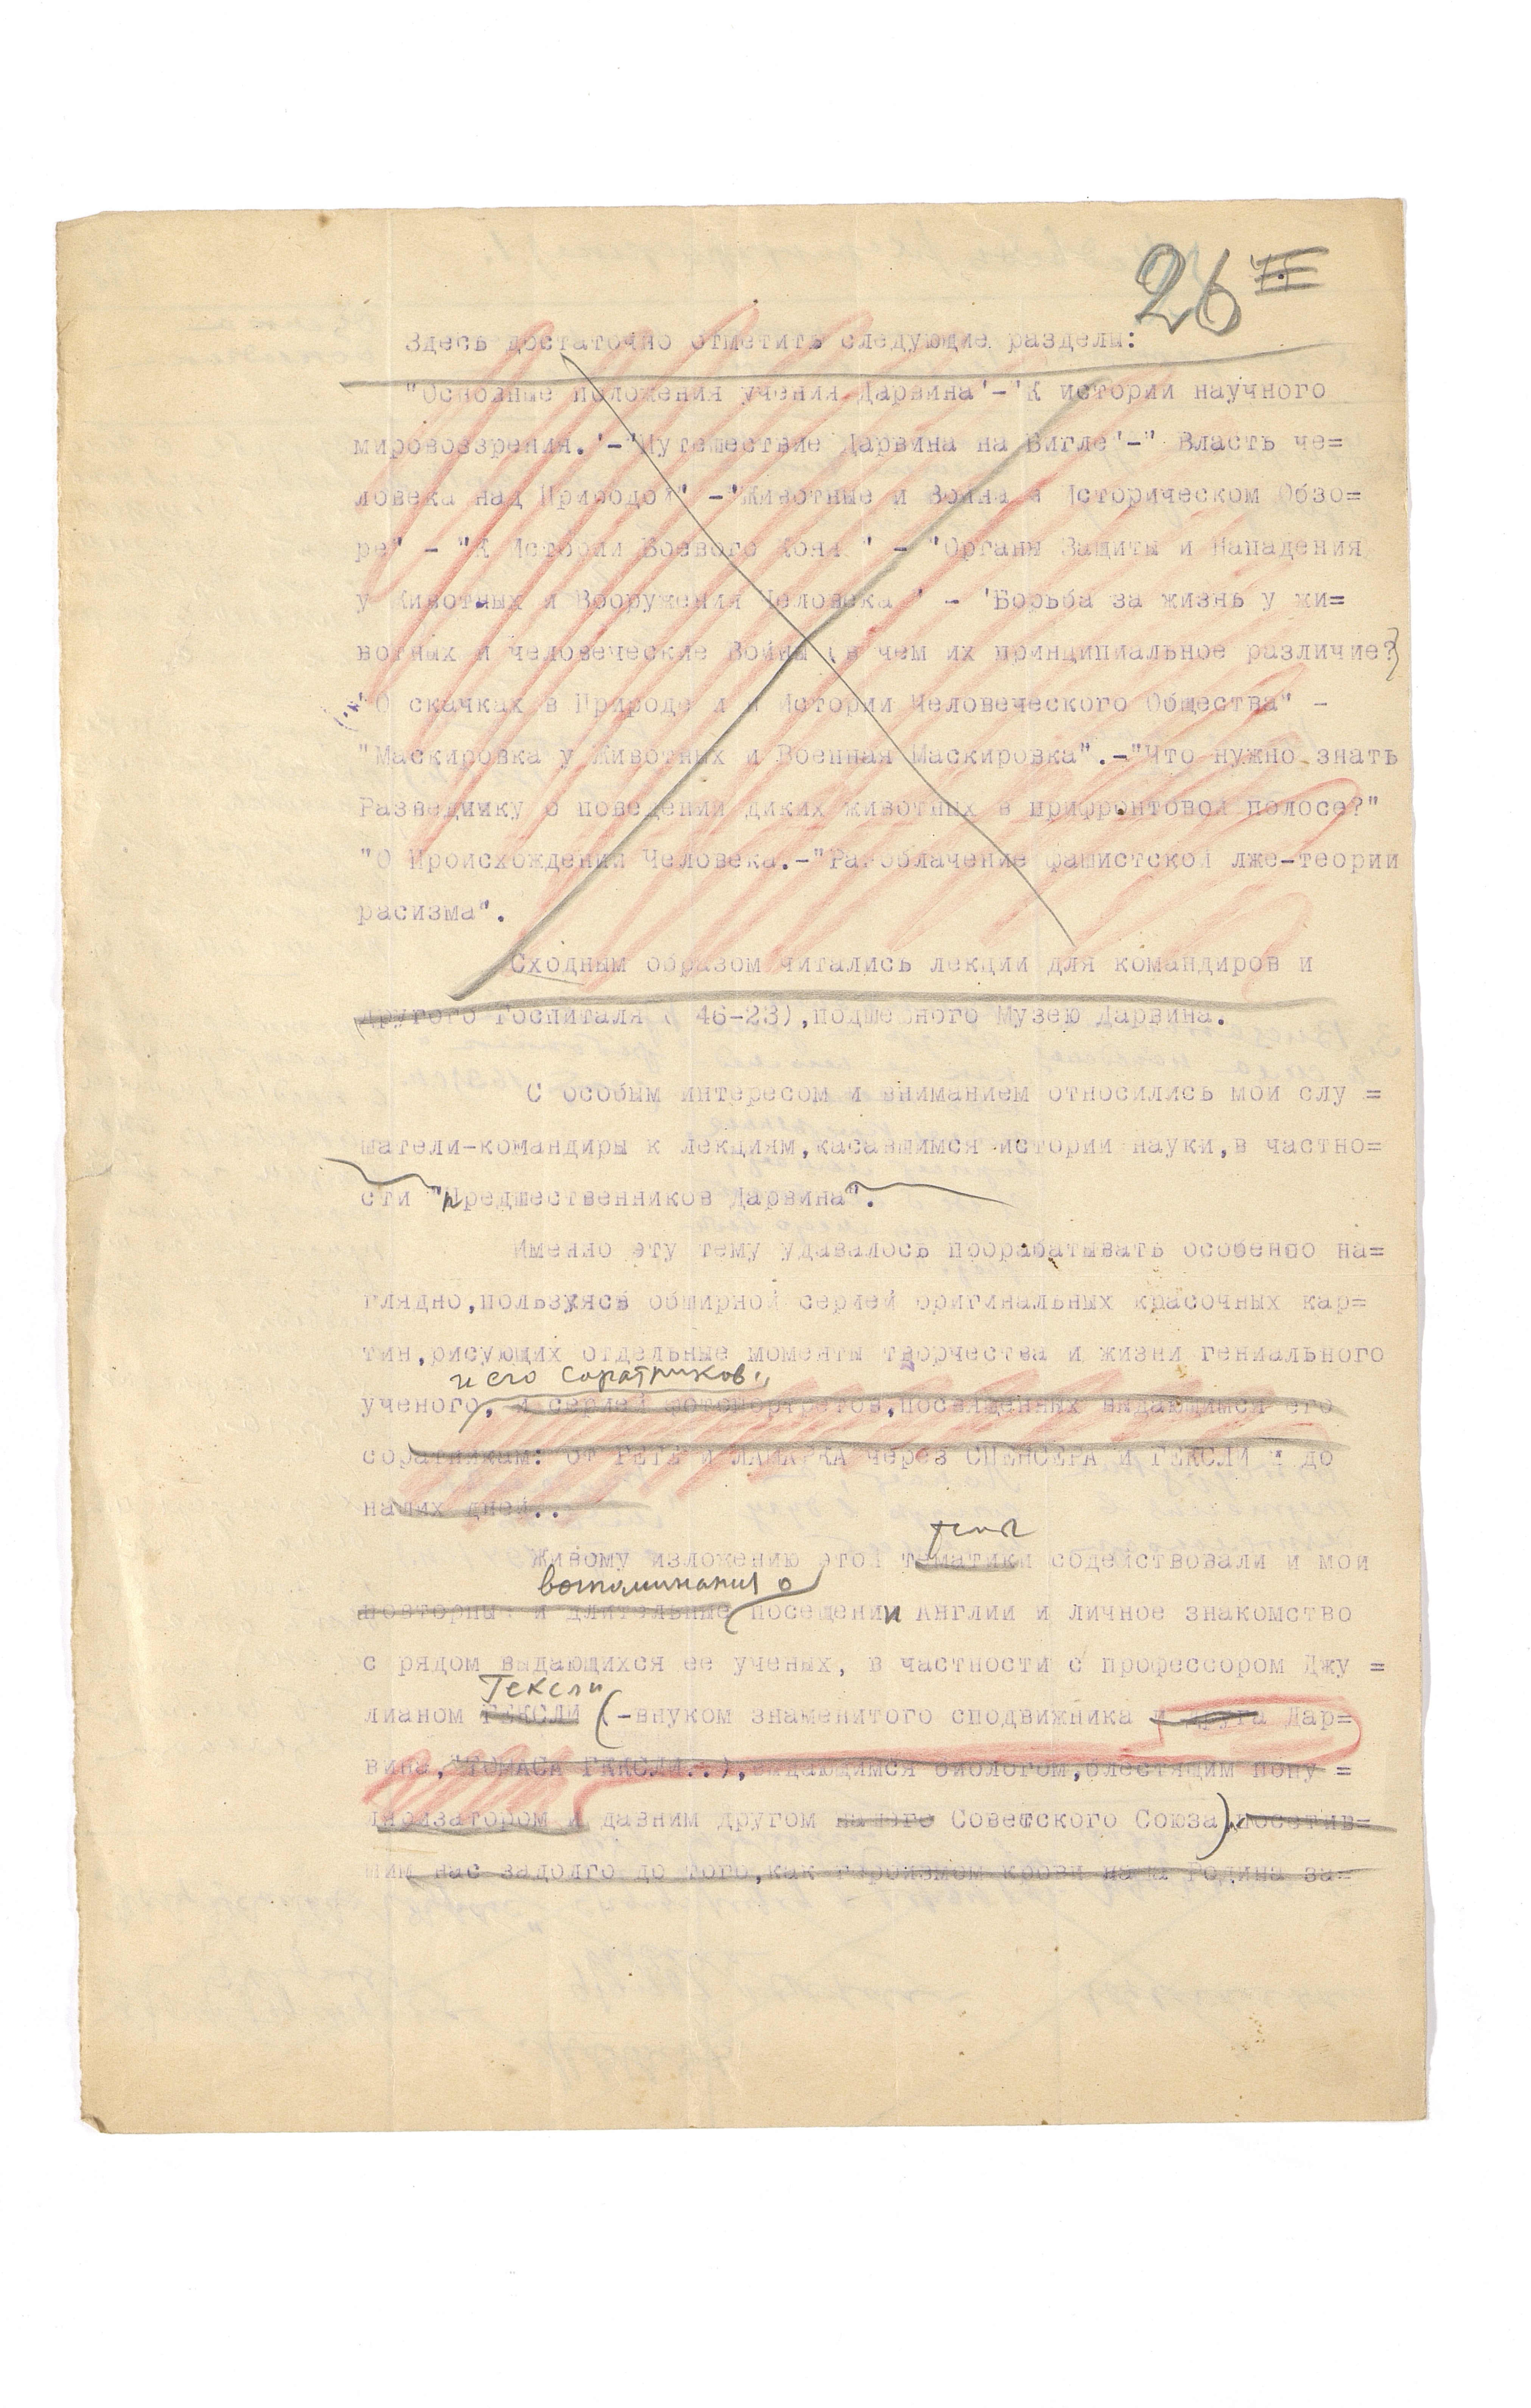 26
Здесь достаточно отметить следующие разделы:
"Основные положения учения Дарвина"-"К истории научного
мировоззрения."-"Путешествие Дарвина на Бигле"-" Власть че=
ловека над Природой" -"Животные и Война в Историческом Обзо=
ре" - "К Истории Боевого Коня " - "Органы Защиты и Нападения
у Животных и Вооружения Человека " - "Борьба за жизнь у жи=
вотных и человеческие Войны (в чем их принципиальное различие?)
"О скачках в Природе и в Истории Человеческого Общества" -
"Маскировка у Животных и Военная Маскировка".-"Что нужно знать
Разведчику о поведении диких животных в прифронтовой полосе?"
"О Происхождении Человека.-"Разоблачение фашистской лже-теории
расизма".
Сходным образом читались лекции для командиров и
другого Госпиталя ( 46-23),подшефного Музею Дарвина.
С особым интересом и вниманием относились мои слу =
шатели-командиры к лекциям,касавшимся истории науки,в частно=
сти "Предшественников Дарвина".
Именно эту тему удавалось прорабатывать особенно на=
глядно,пользуясь обширной серией оригинальных красочных кар=
тин,рисующих отдельные моменты творчества и жизни гениального
и его соратников.
ученого, и серией фотопортретов,посвященных выдающимся его
соратникам: от ГЕТЕ и ЛАМАРКА через СПЕНСЕРА и ГЕКСЛИ и до
наших дней..
Живому изложению этой тематики содействовали и мои
воспоминания о
повторные и длительные посещении Англии и личное знакомство
с рядом выдающихся ее ученых, в частности с профессором Джу =
Гексли
лианом ГЕКСЛИ (-внуком знаменитого сподвижника и друга Дар=
вина, ТОМАСА ГЕКСЛИ..),выдающимся биологом,блестящим попу =
ляризатором и давним другом нашего Советского Союза), посетив=
шим нас задолго до того,как героизмом крови наша Родина за=